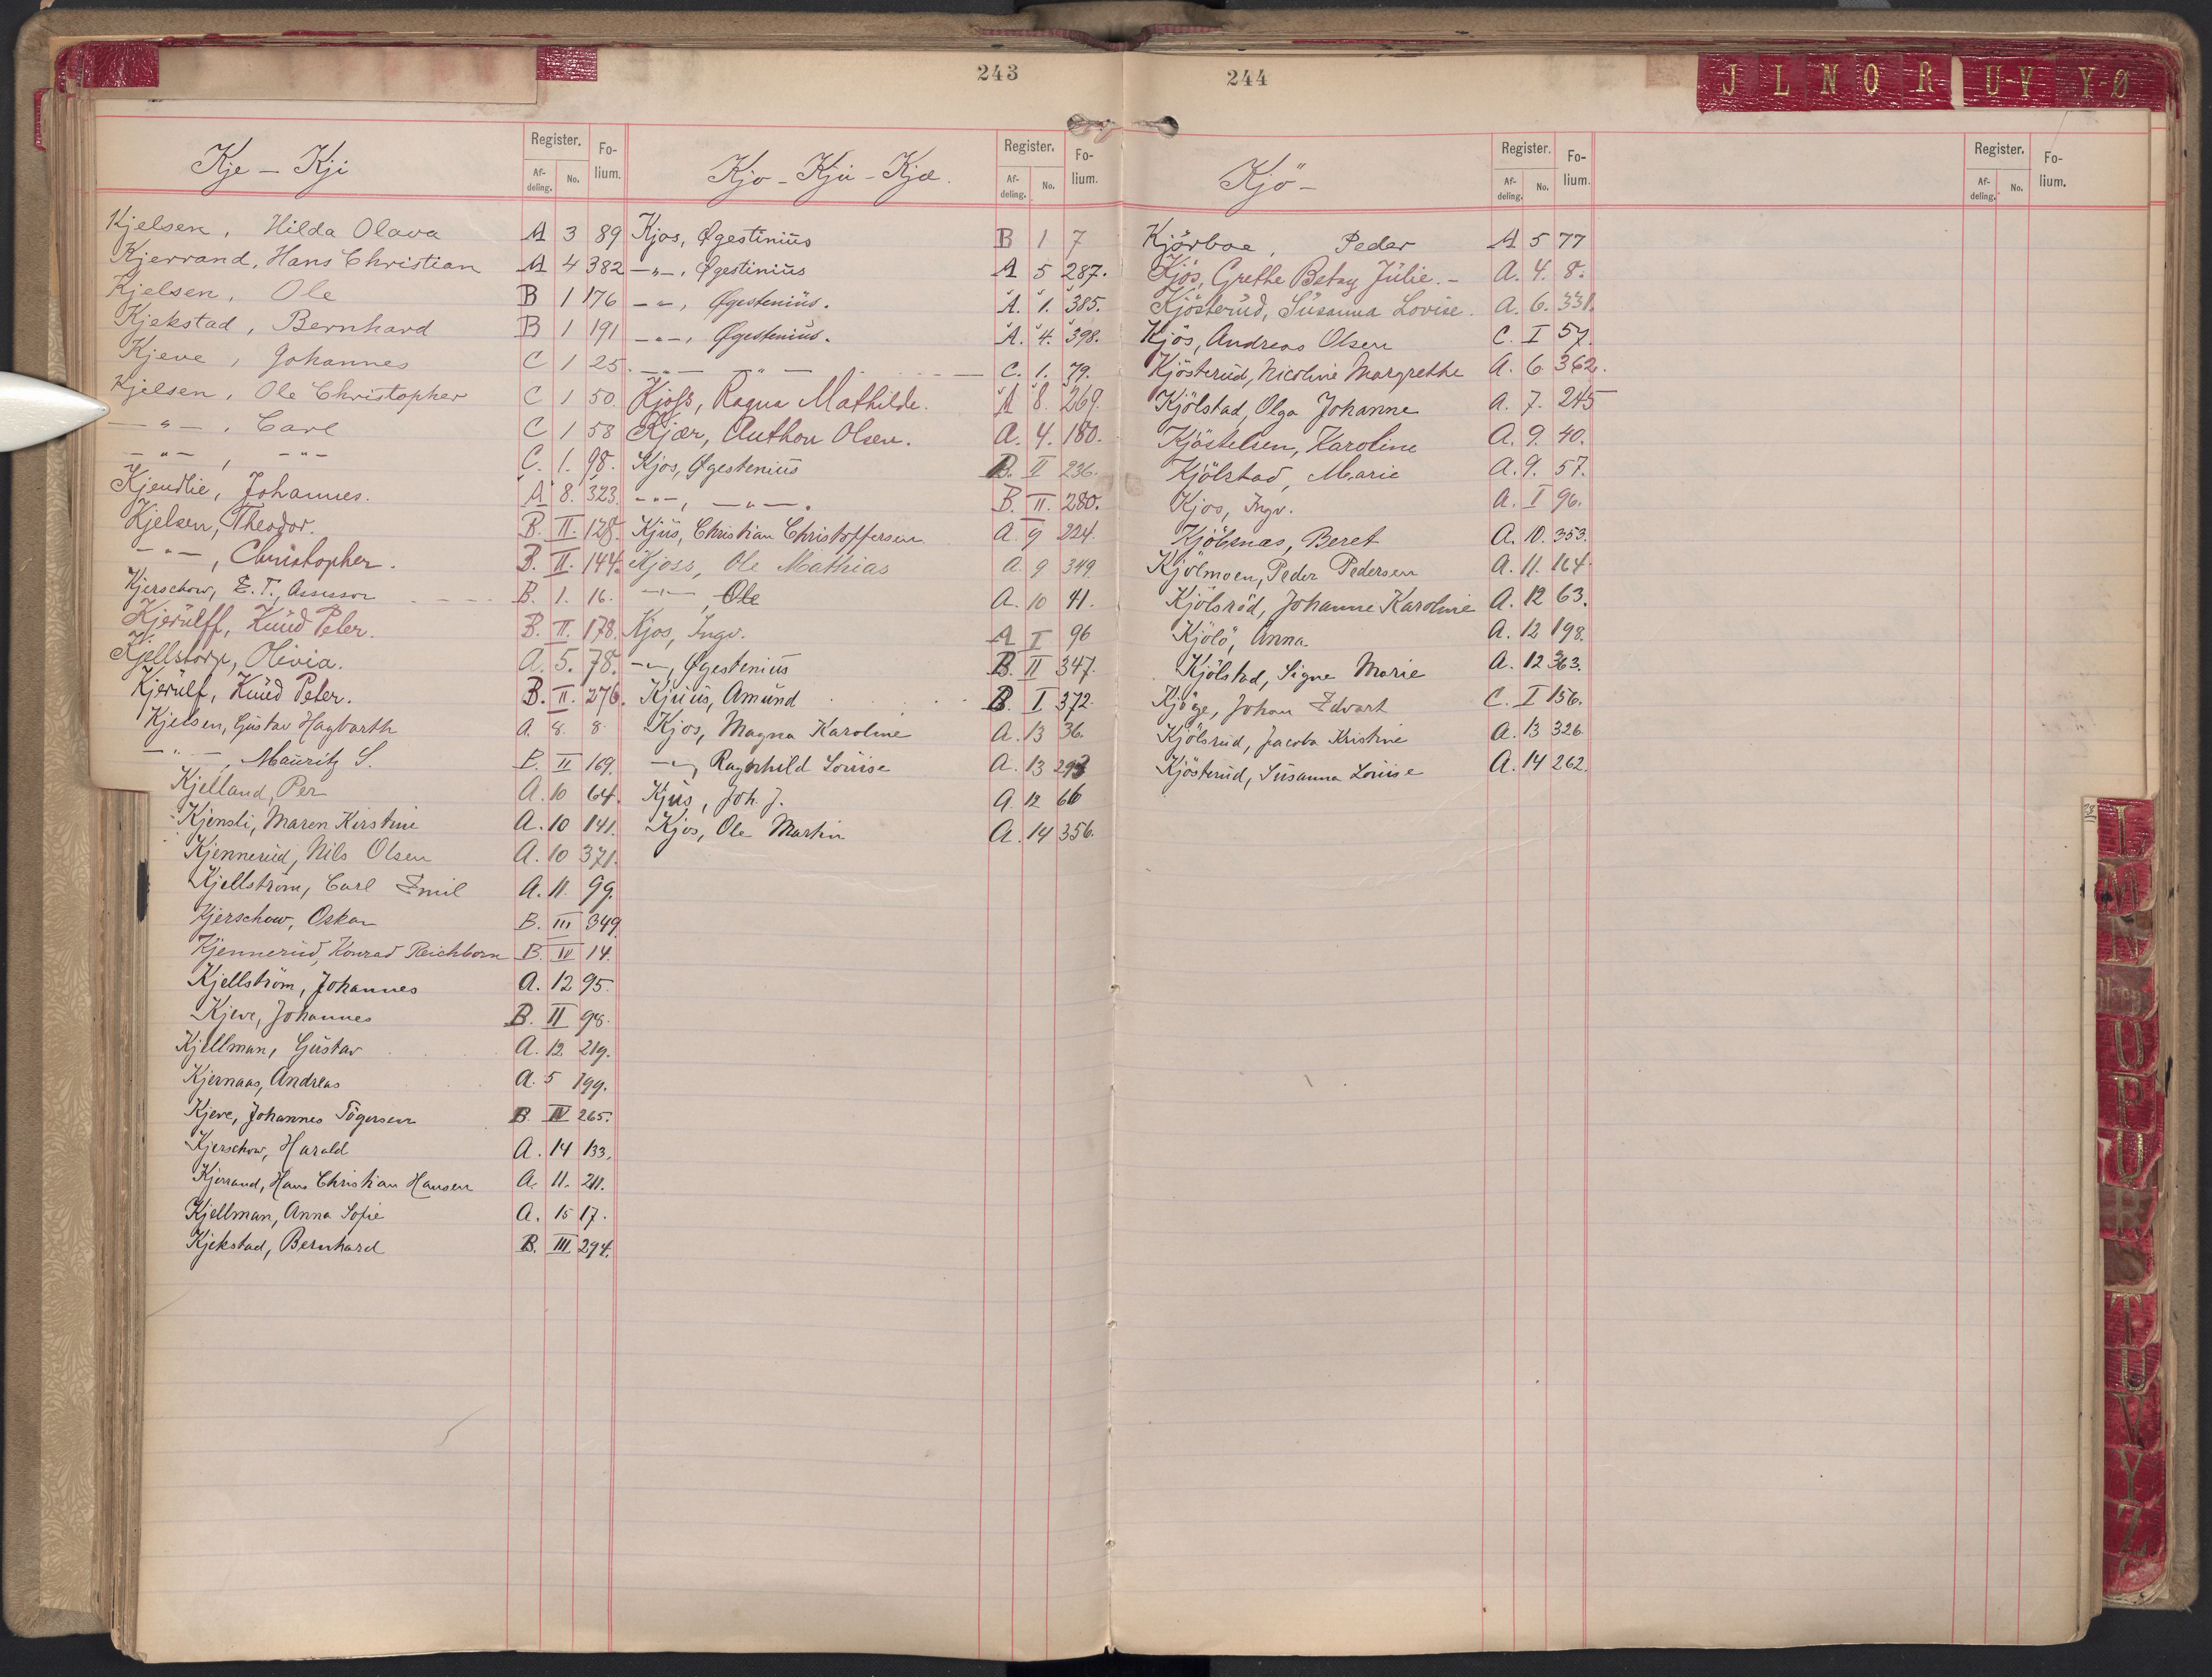 243
Kje – Kji
Register.
Fo-lium.
Af-deling.
No.
Kjelsen, Hilda Olava A 3 89
Kjerrand, Hans Christian A 4 382
Kjelsen, Ole B 1 176
Kjekstad, Bernhard B 1 191
Kjeve, Johannes C 1 25
Kjelsen, Ole Christopher C 1 50
—"—, Carl C 1 58
—"—, —"— C. 1. 98.
Kjendlie, Johannes. A 8. 323.
Kjelsen, Theodor. B. II. 128.
—"—, Christopher. B. II. 144.
Kjerschow, E. T., Assessor B. 1. 16.
Kjerülff, Knüd Peter. B. II. 178.
Kjellstorp, Olivia. A. 5. 78.
Kjerülf, Knüd Peter. B. II. 276.
Kjelsen, Güstav Hagbarth A. 8. 8
—"—, Mauritz S. B. II 169.
Kjelland, Per A. 10 64.
Kjensli, Maren Kirstine A. 10 141.
Kjennerüd, Nils Olsen A. 10 371.
Kjellström, Carl Emil A. 11. 99.
Kjerschow, Oskar B. III 349
Kjennerüd, Konrad Reichborn B. IV 14.
Kjellström, Johannes A. 12 95.
Kjeve, Johannes B. II 98.
Kjellman, Güstav A. 12. 219.
Kjernaas, Andreas A. 5 199.
Kjeve, Johannes Tögersen B. IV 265.
Kjerschow, Harald A. 14 133.
Kjerrand, Hans Christian Hansen A. 11. 211.
Kjellman, Anna Sofie A. 15 17.
Kjekstad, Bernhard B. III 294.
Kjo – Kjü – Kjæ.
Register.
Fo-lium.
Af-deling.
No.
Kjos, Øgestiniüs B 1 7
—"—, Øgestiniüs A 5 287.
—"—, Øgesteniüs. A. 1. 385.
—"—, Øgesteniüs. A. 4. 398.
—"— —"— C. 1. 79.
Kjoss, Ragna Mathilde. A 8. 269.
Kjær, Anthon Olsen. A. 4. 180.
Kjos, Øgesteniüs B. II 236.
—"—, —"—. B. II. 280.
Kjüs, Christian Christoffersen A. 9 224.
Kjoss, Ole Mathias A 9 349.
—"—, Ole A. 10 41.
Kjos, Ingv. A I 96
—"—, Øgesteniüs B. II 347.
Kjüüs, Amünd B. I 372.
Kjos, Magna Karoline A. 13 36.
—"—, Ragnhild Loüise A. 13 293
Kjüs, Joh. J. A. 12 66
Kjos, Ole Martin A. 14 356.
244
J L N O R U-V Y-Ø
Kjö –
Register.
Fo-lium.
Af-deling.
No.
Kjörboe, Peder A 5 77
Kjös, Grethe Betzy Jülie. – A. 4. 8.
Kjösterüd, Süsanna Lovise. A. 6. 331.
Kjös, Andreas Olsen C. I 57.
Kjösterüd, Nicoline Margrethe A. 6. 362.
Kjölstad, Olga Johanne A. 7. 245
Kjöstelsen, Karoline A. 9. 40.
Kjölstad, Marie A. 9. 57.
Kjos, Ingv. A. I 96.
Kjölsnæs, Beret A. 10. 353.
Kjölmoen, Peder Pedersen A. 11. 164.
Kjölsröd, Johanne Karoline A. 12 63.
Kjölö, Anna A. 12 198.
Kjölstad, Signe Marie A. 12 363.
Kjöge, Johan Edvart C. I 156.
Kjölsrüd, Jacoba Kristine A. 13 326.
Kjösterüd, Süsanna Loüise A. 14 262.
Register.
Fo-lium.
Af-deling.
No.
281